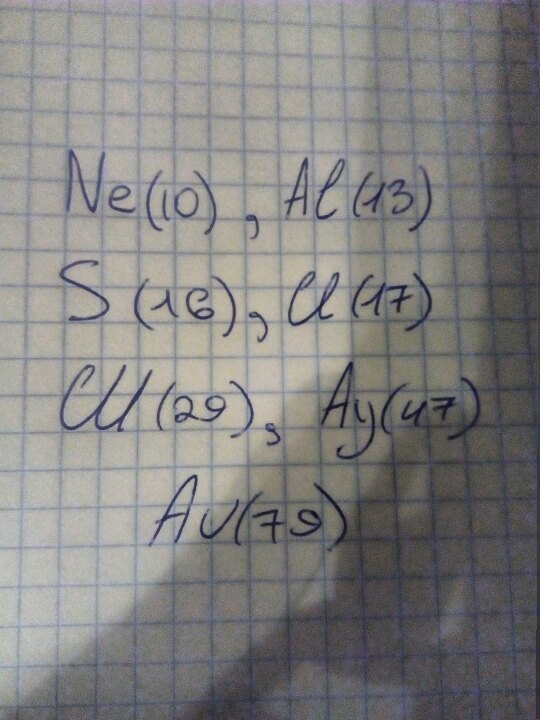 Ne(10), Al(13)
S(16), Cl(17)
Cu(29), Ag(47)
Au(79)